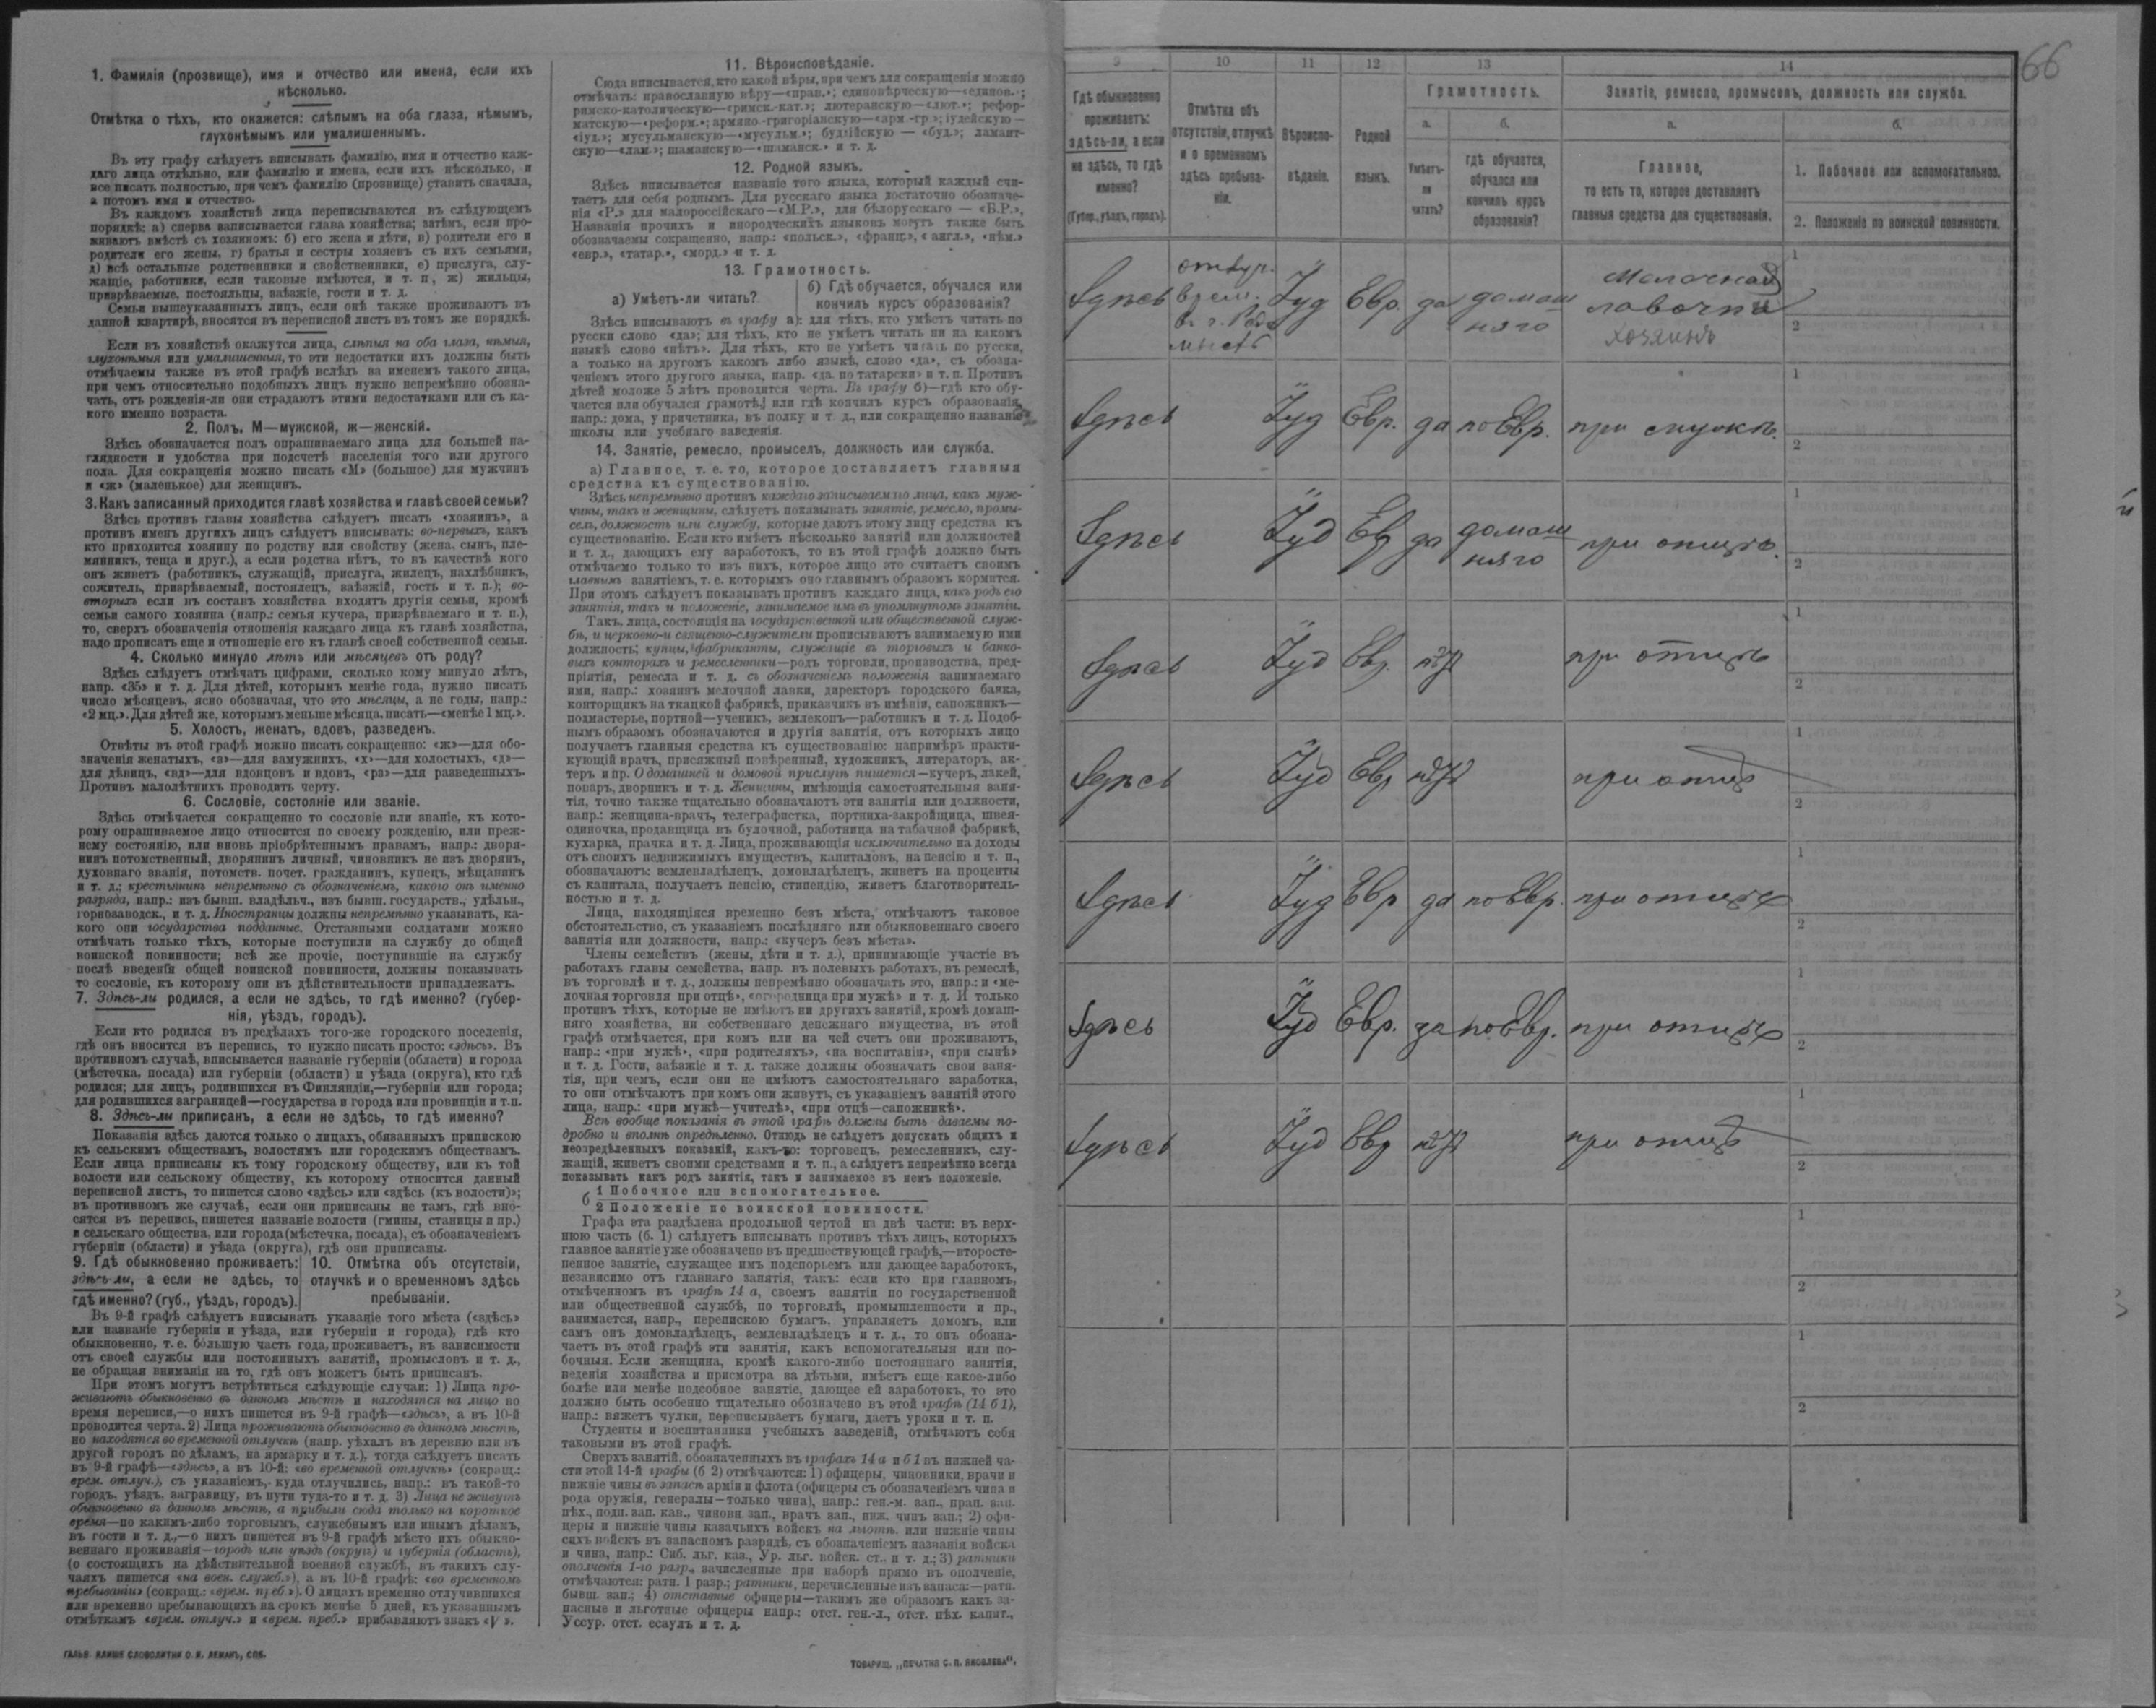 1. Фамилія (прозвище), имя и отчество или имена, если ихъ
нѣсколько.
Отмѣтка о тѣхъ, кто окажется: слѣпымъ на оба глаза, нѣмымъ,
глухонѣмымъ или умалишеннымъ.
Въ эту графу слѣдуетъ вписывать фамилію, имя и отчество каж-
даго лица отдѣльно, или фамилію и имена, если ихъ нѣсколько, и
все писать полностью, при чемъ фамилію (прозвище) ставить сначала,
а потомъ имя и отчество.
Въ каждомъ хозяйствѣ лица переписываются въ слѣдующемъ
порядкѣ: а) сперва записывается глава хозяйства; затѣмъ, если про-
живаютъ вмѣстѣ съ хозяиномъ: б) его жена и дѣти, в) родители его и
родители его жены, г) братья и сестры хозяевъ съ ихъ семьями,
д) всѣ остальные родственники и свойственники, е) прислуга, слу-
жащіе, работники, если таковые имѣются, и т. п., ж) жильцы,
призрѣваемые, постояльцы, заѣзжіе, гости и т. д.
Семьи вышеуказанныхъ лицъ, если онѣ также проживаютъ въ
данной квартирѣ, вносятся въ переписной листъ въ томъ же порядкѣ.
Если въ хозяйствѣ окажутся лица, слѣпыя на оба глаза, нѣмыя,
глухонѣмыя или умалишенныя, то эти недостатки ихъ должны быть
отмѣчаемы также въ этой графѣ вслѣдъ за именемъ такого лица,
при чемъ относительно подобныхъ лицъ нужно непремѣнно обозна-
чать, отъ рожденія-ли они страдаютъ этими недостатками или съ ка-
кого именно возраста.
2. Полъ. М—мужской, ж—женскій.
Здѣсь обозначается полъ опрашиваемаго лица для большей на-
глядности и удобства при подсчетѣ населенія того или другого
пола. Для сокращенія можно писать «М» (большое) для мужчинъ
и «ж» (маленькое) для женщинъ.
3. Какъ записанный приходится главѣ хозяйства и главѣ своей семьи?
Здѣсь противъ главы хозяйства слѣдуетъ писать «хозяинъ», а
противъ именъ другихъ лицъ слѣдуетъ вписывать: во-первыхъ, какъ
кто приходится хозяину по родству или свойству (жена, сынъ, пле-
мянникъ, теща и друг.), а если родства нѣтъ, то въ качествѣ кого
онъ живетъ (работникъ, служащій, прислуга, жилецъ, нахлѣбникъ,
сожитель, призрѣваемый, постоялецъ, заѣзжій, гость и т. п.); во-
вторыхъ если въ составъ хозяйства входятъ другія семьи, кромѣ
семьи самого хозяина (напр.: семья кучера, призрѣваемаго и т. п.),
то, сверхъ обозначенія отношенія каждаго лица къ главѣ хозяйства,
надо прописать еще и отношеніе его къ главѣ своей собственной семьи.
4. Сколько минуло лѣтъ или мѣсяцевъ отъ роду?
Здѣсь слѣдуетъ отмѣчать цифрами, сколько кому минуло лѣтъ,
напр. «35» и т. д. Для дѣтей, которымъ менѣе года, нужно писать
число мѣсяцевъ, ясно обозначая, что это мѣсяцы, а не годы, напр.:
«2 мц.». Для дѣтей же, которымъ меньше мѣсяца, писать—«менѣе 1 мц.».
5. Холостъ, женатъ, вдовъ, разведенъ.
Отвѣты въ этой графѣ можно писать сокращенно: «ж»—для обо-
значенія женатыхъ, «з»—для замужнихъ, «х»—для холостыхъ, «д»—
для дѣвицъ, «вд»—для вдовцовъ и вдовъ, «рз»—для разведенныхъ.
Противъ малолѣтнихъ проводить черту.
6. Сословіе, состояніе или званіе.
Здѣсь отмѣчается сокращенно то сословіе или званіе, къ кото-
рому опрашиваемое лицо относится по своему рожденію, или преж-
нему состоянію, или вновь пріобрѣтеннымъ правамъ, напр.: дворя-
нинъ потомственный, дворянинъ личный, чиновникъ не изъ дворянъ,
духовнаго званія, потомств. почет. гражданинъ, купецъ, мѣщанинъ
и т. д.; крестьянинъ непремѣнно съ обозначеніемъ, какого онъ именно
разряда, напр.: изъ бывш. владѣльч., изъ бывш. государств., удѣльн.,
горнозаводск., и т. д. Иностранцы должны непремѣнно указывать, ка-
кого они государства подданные. Отставными солдатами можно
отмѣчать только тѣхъ, которые поступили на службу до общей
воинской повинности; всѣ же прочіе, поступившіе на службу
послѣ введенія общей воинской повинности, должны показывать
то сословіе, къ которому они въ дѣйствительности принадлежатъ.
7. Здѣсь-ли родился, а если не здѣсь, то гдѣ именно? (губер-
нія, уѣздъ, городъ).
Если кто родился въ предѣлахъ того-же городского поселенія,
гдѣ онъ вносится въ перепись, то нужно писать просто: «здѣсь». Въ
противномъ случаѣ, вписывается названіе губерніи (области) и города
(мѣстечка, посада) или губерніи (области) и уѣзда (округа), кто гдѣ
родился; для лицъ, родившихся въ Финляндіи,—губерніи или города;
для родившихся заграницей—государства и города или провинціи и т.п.
8. Здѣсь-ли приписанъ, а если не здѣсь, то гдѣ именно?
Показанія здѣсь даются только о лицахъ, обязанныхъ припискою
къ сельскимъ обществамъ, волостямъ или городскимъ обществамъ.
Если лица приписаны къ тому городскому обществу, или къ той
волости или сельскому обществу, къ которому относится данный
переписной листъ, то пишется слово «здѣсь» или «здѣсь (къ волости)»;
въ противномъ же случаѣ, если они приписаны не тамъ, гдѣ вно-
сятся въ перепись, пишется названіе волости (гмины, станицы и пр.)
и сельскаго общества, или города (мѣстечка, посада), съ обозначеніемъ
губерніи (области) и уѣзда (округа), гдѣ они приписаны.
9. Гдѣ обыкновенно проживаетъ:
здѣсь-ли, а если не здѣсь, то
гдѣ именно? (губ., уѣздъ, городъ).
10. Отмѣтка объ отсутствіи,
отлучкѣ и о временномъ здѣсь
пребываніи.
Въ 9-й графѣ слѣдуетъ вписывать указаніе того мѣста («здѣсь»
или названіе губерніи и уѣзда, или губерніи и города), гдѣ кто
обыкновенно, т. е. большую часть года, проживаетъ, въ зависимости
отъ своей службы или постоянныхъ занятій, промысловъ и т. д.,
не обращая вниманія на то, гдѣ онъ можетъ быть приписанъ.
При этомъ могутъ встрѣтиться слѣдующіе случаи: 1) Лица про-
живаютъ обыкновенно въ данномъ мѣстѣ и находятся на лицо во
время переписи,—о нихъ пишется въ 9-й графѣ—«здѣсь», а въ 10-й
проводится черта. 2) Лица проживаютъ обыкновенно въ данномъ мѣстѣ,
но находятся во временной отлучкѣ (напр. уѣхалъ въ деревню или въ
другой городъ по дѣламъ, на ярмарку и т. д.), тогда слѣдуетъ писать
въ 9-й графѣ—«здѣсь», а въ 10-й: «во временной отлучкѣ» (сокращ.:
врем. отлуч.), съ указаніемъ, куда отлучились, напр.: въ такой-то
городъ, уѣздъ, заграницу, въ пути туда-то и т. д. 3) Лица не живутъ
обыкновенно въ данномъ мѣстѣ, а прибыли сюда только на короткое
время—по какимъ-либо торговымъ, служебнымъ или инымъ дѣламъ,
въ гости и т. д.,—о нихъ пишется въ 9-й графѣ мѣсто ихъ обыкно-
веннаго проживанія—городъ или уѣздъ (округъ) и губернія (область),
(о состоящихъ на дѣйствительной военной службѣ, въ такихъ слу-
чаяхъ пишется «на воен. служб.»), а въ 10-й графѣ: «во временномъ
пребываніи» (сокращ.: «врем. преб.»). О лицахъ временно отлучившихся
или временно пребывающихъ на срокъ менѣе 5 дней, къ указаннымъ
отмѣткамъ «врем. отлуч.» и «врем. преб.» прибавляютъ знакъ «V».
ГАЛЬВ. КЛИШЕ СЛОВОЛИТНИ О. И. ЛЕМАНЪ, СПБ.
11. Вѣроисповѣданіе.
Сюда вписывается, кто какой вѣры, при чемъ для сокращенія можно
отмѣчать: православную вѣру—«прав.»; единовѣрческую—«единов.»;
римско-католическую—«римск.-кат.»; лютеранскую—«лют.»; рефор-
матскую—«реформ.»; армяно-григоріанскую—«арм.-гр.»; іудейскую—
«іуд.»; мусульманскую—«мусульм.»; буддійскую — «буд.»; ламаит-
скую—«лам.»; шаманскую—«шаманск.» и т. д.
12. Родной языкъ.
Здѣсь вписывается названіе того языка, который каждый счи-
таетъ для себя роднымъ. Для русскаго языка достаточно обозначе-
нія «Р.» для малороссійскаго—«М.Р.», для бѣлорусскаго — «Б.Р.»,
Названія прочихъ и инородческихъ языковъ могутъ также быть
обозначаемы сокращенно, напр.: «польск.», «франц.», «англ.», «нѣм.»
«евр.», «татар.», «морд.» и т. д.
13. Грамотность.
а) Умѣетъ-ли читать?
б) Гдѣ обучается, обучался или
кончилъ курсъ образованія?
Здѣсь вписываютъ въ графу а): для тѣхъ, кто умѣетъ читать по
русски слово «да»; для тѣхъ, кто не умѣетъ читать ни на какомъ
языкѣ слово «нѣтъ». Для тѣхъ, кто не умѣетъ читать по русски,
а только на другомъ какомъ либо языкѣ, слово «да», съ обозна-
ченіемъ этого другого языка, напр. «да, по татарски» и т. п. Противъ
дѣтей моложе 5 лѣтъ проводится черта. Въ графу б)—гдѣ кто обу-
чается или обучался грамотѣ, или гдѣ кончилъ курсъ образованія,
напр.: дома, у причетника, въ полку и т. д., или сокращенно названіе
школы или учебнаго заведенія.
14. Занятіе, ремесло, промыселъ, должность или служба.
а) Главное, т. е. то, которое доставляетъ главныя
средства къ существованію.
Здѣсь непремѣнно противъ каждаго записываемаго лица, какъ муж-
чины, такъ и женщины, слѣдуетъ показывать занятіе, ремесло, промы-
селъ, должность или службу, которые даютъ этому лицу средства къ
существованію. Если кто имѣетъ нѣсколько занятій или должностей
и т. д., дающихъ ему заработокъ, то въ этой графѣ должно быть
отмѣчаемо только то изъ нихъ, которое лицо это считаетъ своимъ
главнымъ занятіемъ, т. е. которымъ оно главнымъ образомъ кормится.
При этомъ слѣдуетъ показывать противъ каждаго лица, какъ родъ его
занятія, такъ и положеніе, занимаемое имъ въ упомянутомъ занятіи.
Такъ, лица, состоящія на государственной или общественной служ-
бѣ, и церковно-и священно-служители прописываютъ занимаемую ими
должность; купцы, фабриканты, служащіе въ торговыхъ и банко-
выхъ конторахъ и ремесленники—родъ торговли, производства, пред-
пріятія, ремесла и т. д. съ обозначеніемъ положенія занимаемаго
ими, напр.: хозяинъ мелочной лавки, директоръ городского банка,
конторщикъ на ткацкой фабрикѣ, приказчикъ въ имѣніи, сапожникъ—
подмастерье, портной—ученикъ, землекопъ—работникъ и т. д. Подоб-
нымъ образомъ обозначаются и другія занятія, отъ которыхъ лицо
получаетъ главныя средства къ существованію: напримѣръ практи-
кующій врачъ, присяжный повѣренный, художникъ, литераторъ, ак-
теръ и пр. О домашней и домовой прислугѣ пишется—кучеръ, лакей,
поваръ, дворникъ и т. д. Женщины, имѣющія самостоятельныя заня-
тія, точно также тщательно обозначаютъ эти занятія или должности,
напр.: женщина-врачъ, телеграфистка, портниха-закройщица, швея-
одиночка, продавщица въ булочной, работница на табачной фабрикѣ,
кухарка, прачка и т. д. Лица, проживающія исключительно на доходы
отъ своихъ недвижимыхъ имуществъ, капиталовъ, на пенсію и т. п.,
обозначаютъ: землевладѣлецъ, домовладѣлецъ, живетъ на проценты
съ капитала, получаетъ пенсію, стипендію, живетъ благотворитель-
ностью и т. д.
Лица, находящіяся временно безъ мѣста, отмѣчаютъ таковое
обстоятельство, съ указаніемъ послѣдняго или обыкновеннаго своего
занятія или должности, напр.: «кучеръ безъ мѣста».
Члены семействъ (жены, дѣти и т. д.), принимающіе участіе въ
работахъ главы семейства, напр. въ полевыхъ работахъ, въ ремеслѣ,
въ торговлѣ и т. д., должны непремѣнно обозначать это, напр.: и «ме-
лочная торговля при отцѣ», «огородница при мужѣ» и т. д. И только
противъ тѣхъ, которые не имѣютъ ни другихъ занятій, кромѣ домаш-
няго хозяйства, ни собственнаго денежнаго имущества, въ этой
графѣ отмѣчается, при комъ или на чей счетъ они проживаютъ,
напр.: «при мужѣ», «при родителяхъ», «на воспитаніи», «при сынѣ»
и т. д. Гости, заѣзжіе и т. д. также должны обозначать свои заня-
тія, при чемъ, если они не имѣютъ самостоятельнаго заработка,
то они отмѣчаютъ при комъ они живутъ, съ указаніемъ занятій этого
лица, напр.: «при мужѣ—учителѣ», «при отцѣ—сапожникѣ».
Всѣ вообще показанія въ этой графѣ должны быть даваемы по-
дробно и вполнѣ опредѣленно. Отнюдь не слѣдуетъ допускать общихъ и
неопредѣленныхъ показаній, какъ-то: торговецъ, ремесленникъ, слу-
жащій, живетъ своими средствами и т. п., а слѣдуетъ непремѣнно всегда
показывать какъ родъ занятія, такъ и занимаемое въ немъ положеніе.
б 1 Побочное или вспомогательное.
2 Положеніе по воинской повинности.
Графа эта раздѣлена продольной чертой на двѣ части: въ верх-
нюю часть (б. 1) слѣдуетъ вписывать противъ тѣхъ лицъ, которыхъ
главное занятіе уже обозначено въ предшествующей графѣ,—второсте-
пенное занятіе, служащее имъ подспорьемъ или дающее заработокъ,
независимо отъ главнаго занятія, такъ: если кто при главномъ,
отмѣченномъ въ графѣ 14 а, своемъ занятіи по государственной
или общественной службѣ, по торговлѣ, промышленности и пр.,
занимается, напр., перепискою бумагъ, управляетъ домомъ, или
самъ онъ домовладѣлецъ, землевладѣлецъ и т. д., то онъ обозна-
чаетъ въ этой графѣ эти занятія, какъ вспомогательныя или по-
бочныя. Если женщина, кромѣ какого-либо постояннаго занятія,
веденія хозяйства и присмотра за дѣтьми, имѣетъ еще какое-либо
болѣе или менѣе подсобное занятіе, дающее ей заработокъ, то это
должно быть особенно тщательно обозначено въ этой графѣ (14 б 1),
напр.: вяжетъ чулки, переписываетъ бумаги, даетъ уроки и т. п.
Студенты и воспитанники учебныхъ заведеній, отмѣчаютъ себя
таковыми въ этой графѣ.
Сверхъ занятій, обозначенныхъ въ графахъ 14 а и б 1 въ нижней ча-
сти этой 14-й графы (б 2) отмѣчаются: 1) офицеры, чиновники, врачи и
нижніе чины въ запасѣ арміи и флота (офицеры съ обозначеніемъ чина и
рода оружія, генералы—только чина), напр.: ген.-м. зап., прап. зап.
пѣх., подп. зап. кав., чиновн. зап., врачъ зап., ниж. чинъ зап.; 2) офи-
церы и нижніе чины казачьихъ войскъ на льготѣ, или нижніе чины
сихъ войскъ въ запасномъ разрядѣ, съ обозначеніемъ названія войска
и чина, напр.: Сиб. льг. каз., Ур. льг. войск. ст. и т. д.; 3) ратники
ополченія 1-го разр., зачисленные при наборѣ прямо въ ополченіе,
отмѣчаются: ратн. 1 разр.; ратники, перечисленные изъ запаса:—ратн.
бывш. зап.; 4) отставные офицеры—такимъ же образомъ какъ за-
пасные и льготные офицеры напр.: отст. ген.-л., отст. пѣх. капит.,
Уссур. отст. есаулъ и т. д.
ТОВАРИЩ. „ПЕЧАТНЯ С. П. ЯКОВЛЕВА".
66
9 10 11 12 13 14
Гдѣ обыкновенно
проживаетъ:
здѣсь-ли, а если
не здѣсь, то гдѣ
именно?
(Губер., уѣздъ, городъ).
Отмѣтка объ
отсутствіи, отлучкѣ
и о временномъ
здѣсь пребыва-
ніи.
Вѣроиспо-
вѣданіе.
Родной
языкъ.
Грамотность.
а.
Умѣетъ-
ли
читать?
б.
гдѣ обучается,
обучался или
кончилъ курсъ
образованія?
Занятіе, ремесло, промыселъ, должность или служба.
а.
Главное,
то есть то, которое доставляетъ
главныя средства для существованія.
б.
1. Побочное или вспомогательное.
2. Положеніе по воинской повинности.
Здѣсь Іуд Евр. да домаш няго Мелочной лавочки хозяинъ
1
2
Здѣсь Іуд Евр. да по Евр. при
1
2
Здѣсь Іуд Евр да домаш няго при отцѣ.
1
2
Здѣсь Іуд Евр. нѣтъ при отцѣ
1
2
Здѣсь Іуд Евр нѣтъ при отцѣ
1
2
Здѣсь Іуд Евр да по Евр. при отцѣ
1
2
Здѣсь Іуд Евр. да по Евр. при отцѣ
1
2
Здѣсь Іуд Евр нѣтъ при отцѣ
1
2
1
2
1
2